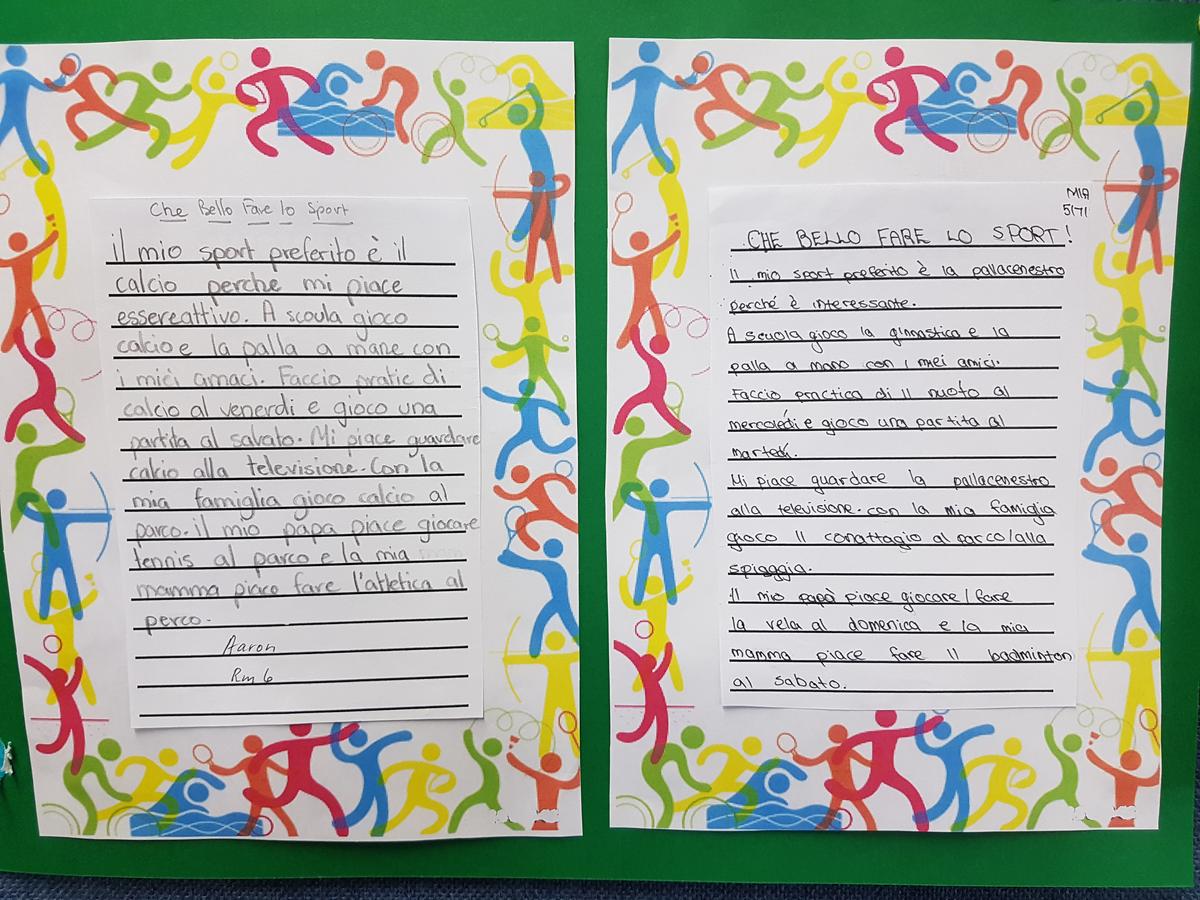 Che Bello Fare lo Sport
il mio sport preferito è il
calcio perche mi piace
essereattivo. A scoula gioco
calcio e la palla a mane con
i miei amaci. Faccio pratic di
calcio al venerdi e gioco una
partita al sabato. Mi piace guardare
calcio alla televisione. Con la
mia famiglia gioco calcio al
parco. il mio papa piace giocare
tennis al parco e la mia
mamma piace fare l'atletica al
perco.
Aaron
Rm 6
MIA
5/71
CHE BELLO FARE LO SPORT!
Il mio sport preferito è la pallacenestro
perché è interessante.
A scuola gioco la ginnastica e la
palla a mano con i miei amici.
Faccio practica di Il nuoto al
mercoledí e gioco una partita al
martedí.
Mi piace guardare la pallacenestro
alla televisione. con la mia famiglia
gioco Il conattagio al parco/alla
spiaggia.
Il mio papà piace giocare/fare
la vela al domenica e la mia
mamma piace fare Il badminton
al sabato.